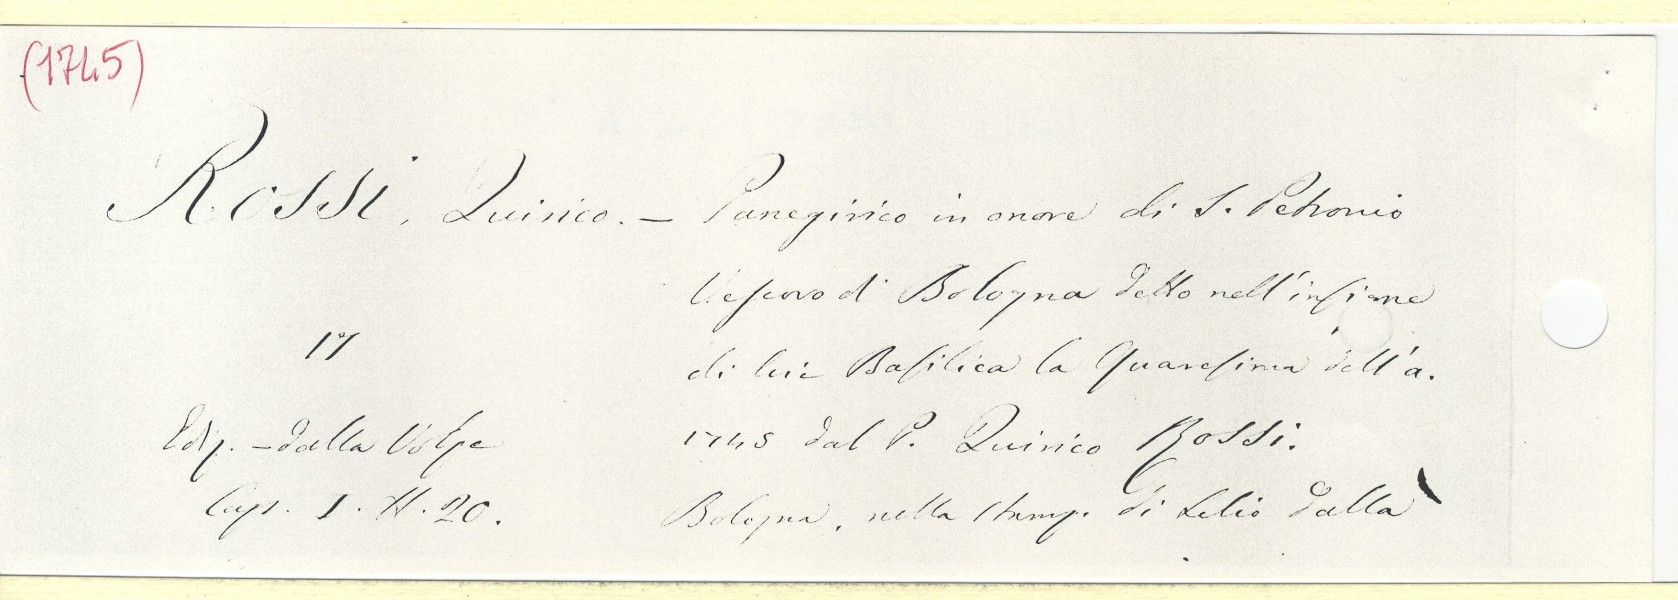 (1745)
Rossi, Quirico. — Panegirico in onore di S. Petronio
Vescovo di Bologna detto nell'insigne
di lui Basilica la Quaresima dell'a.
17
Ediz. - dalla Volpe
1745 dal P. Quirico Rossi.
Caps. I. H. 20.
Bologna, nella stamp. di Lelio dalla